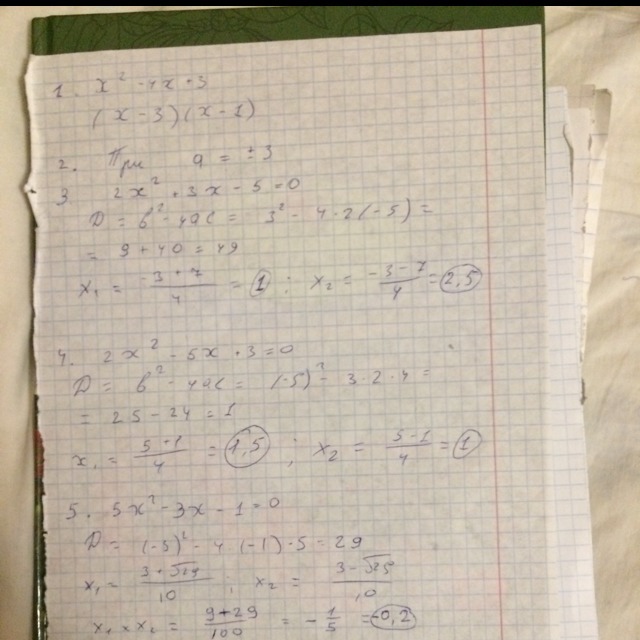 1. x² - 4x + 3
(x - 3)(x - 1)
2. При a = ±3
3. 2x² + 3x - 5 = 0
D = b² - 4ac = 3² - 4·2(-5) =
= 9 + 40 = 49
x₁ = (-3+7)/4 = 1 ; x₂ = (-3-7)/4 = 2,5
4. 2x² - 5x + 3 = 0
D = b² - 4ac = (-5)² - 3·2·4 =
= 25 - 24 = 1
x₁ = (5+1)/4 = 1,5 ; x₂ = (5-1)/4 = 1
5. 5x² - 3x - 1 = 0
D = (-3)² - 4(-1)·5 = 29
x₁ = (3+√29)/10 ; x₂ = (3-√29)/10
x₁·x₂ = (9+29)/100 = -1/5 = -0,2